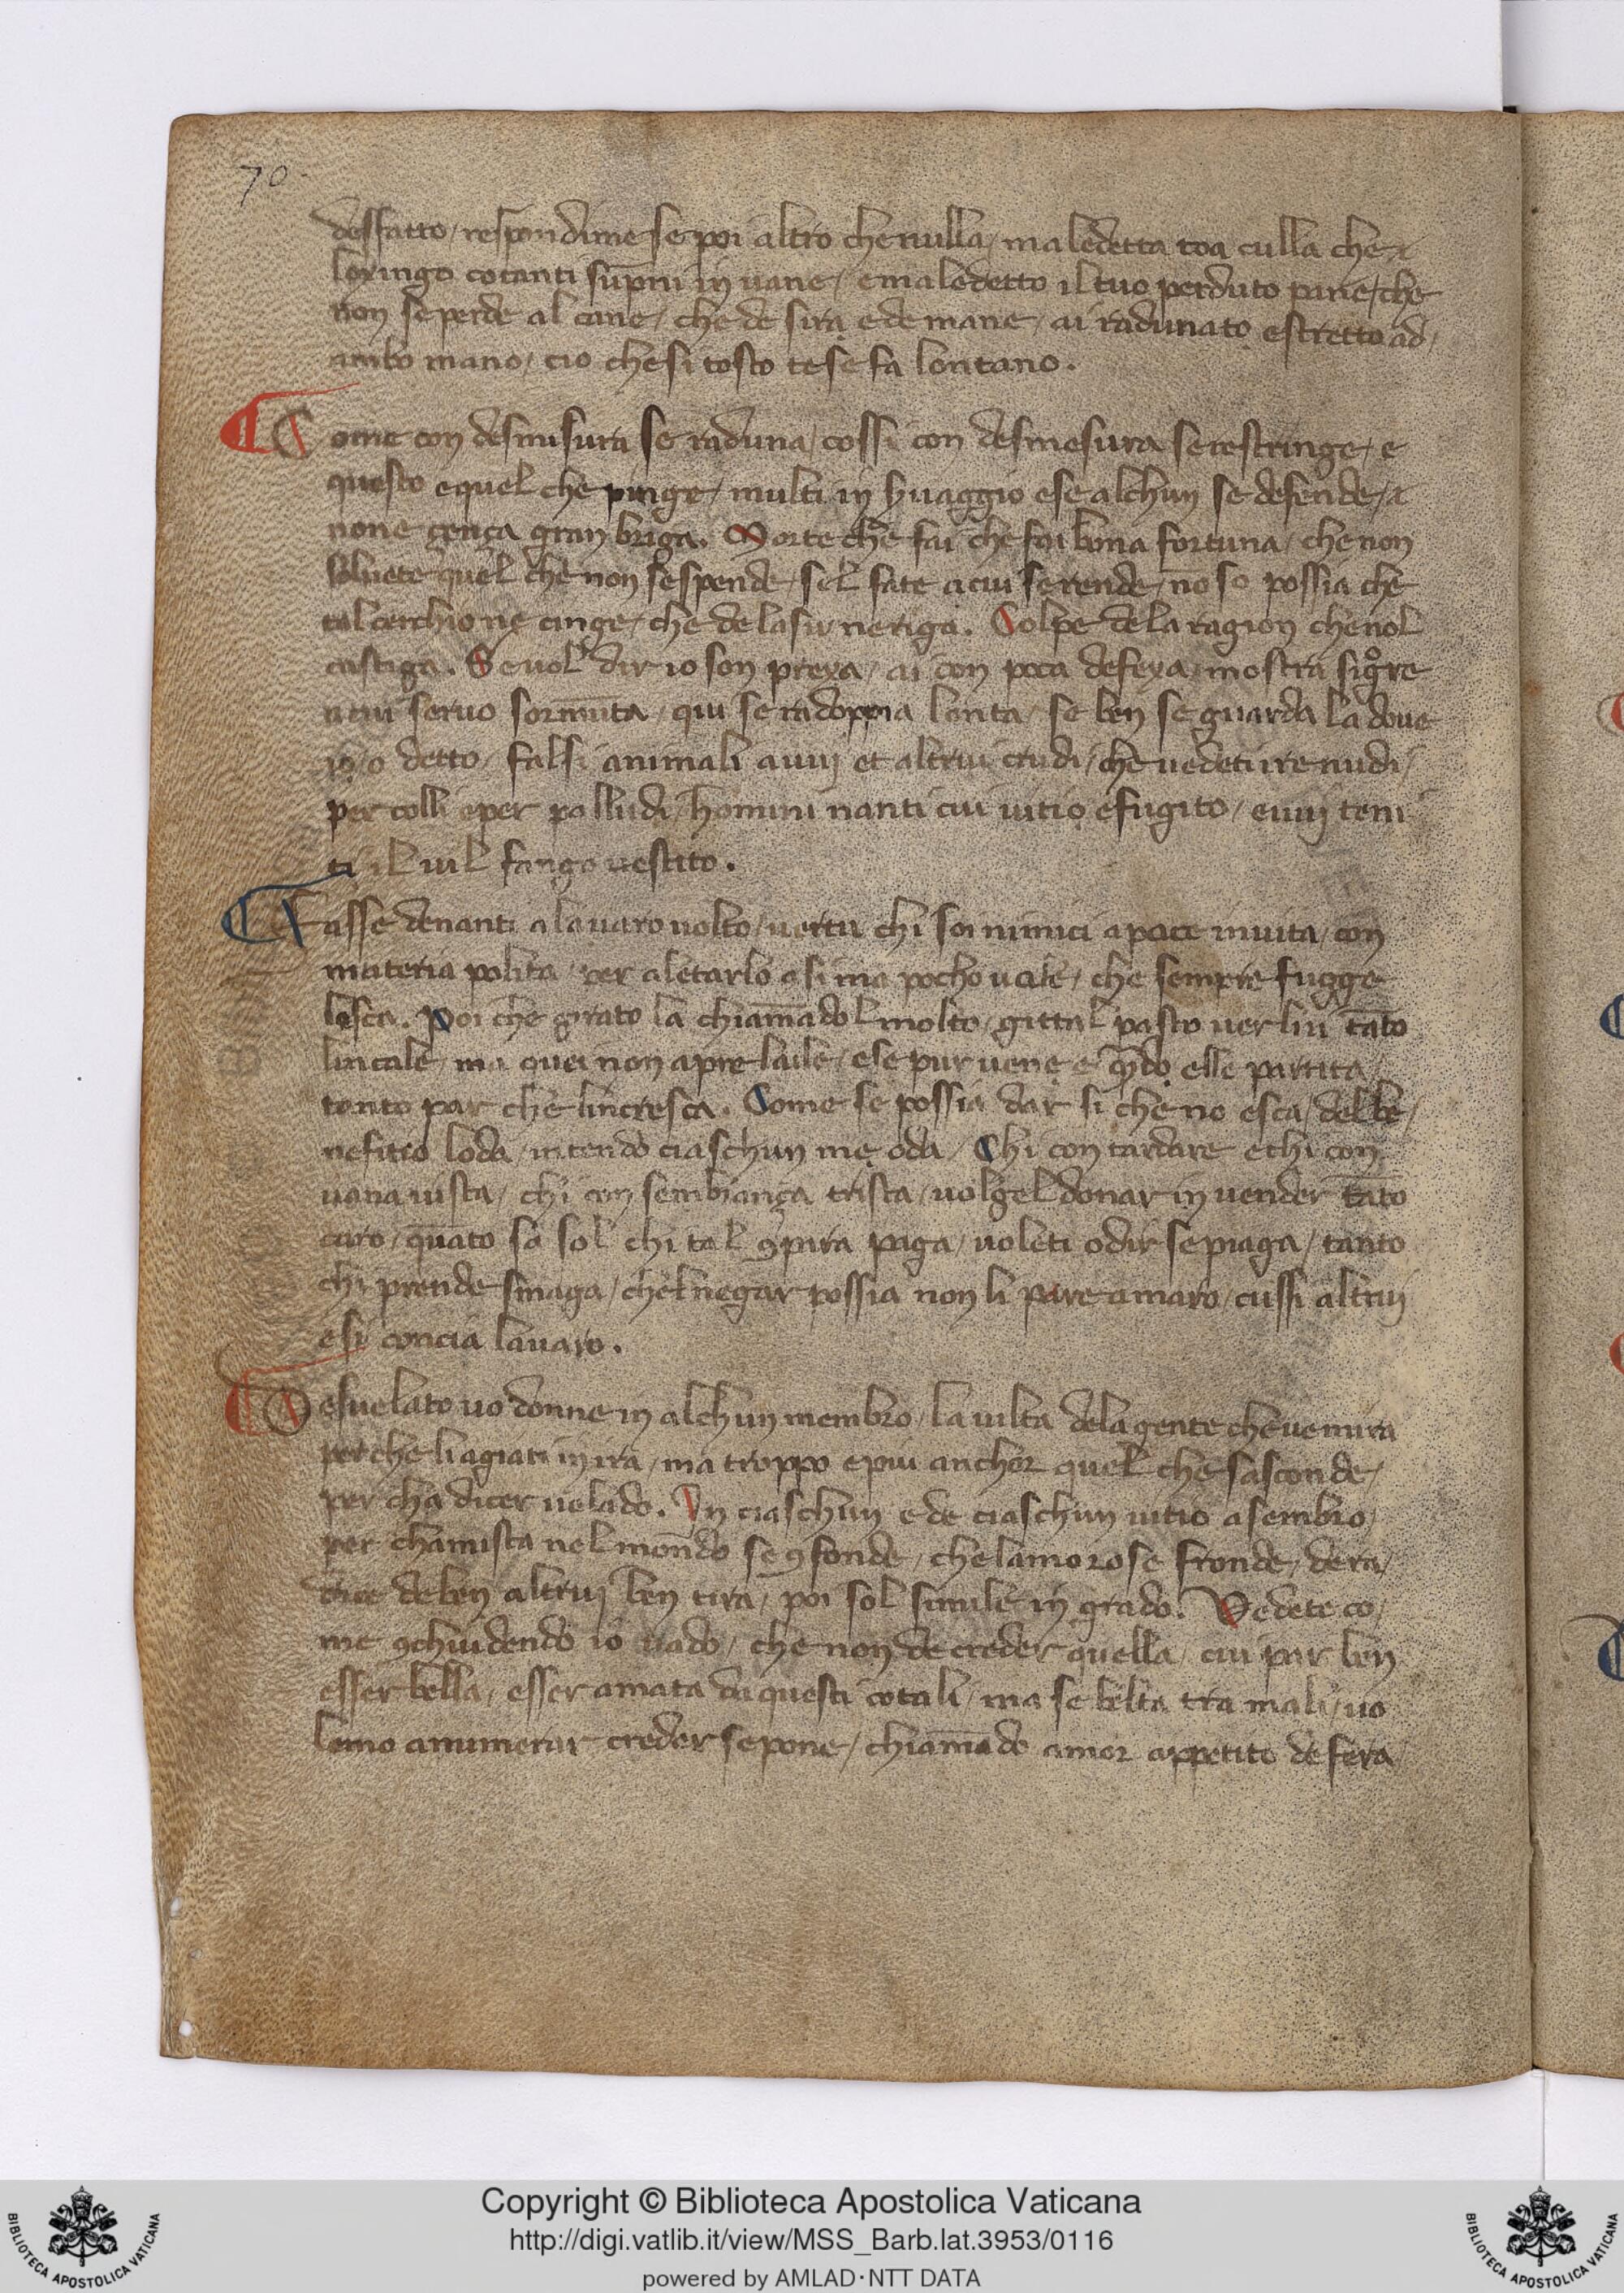 70
desfatto / respondime se poi altro che nulla / maledetta toa culla che
loxingo cotanti su̅pni in uane / e maledetto il tuo perduto pane / che
non se perde al cane / che de sira e de mane / ai radunato e stretto ad /
ambo mano / cio che si tosto te se fa lontano.
Come con desmisura se raduna / cossi con desmesura se restringe / e
questo e quel che pinge / multi in seruaggio e se alchun se defende /
none çença gran briga. Morte che fai che fai bona fortuna / che non
soluete quel che non se spende / sel fate a cui se rende / no̅ so possia che
tal cerchio ne cinge / che de lasu ne riga. Colpe de la ragion che nol
castiga. Se uol dir io son prexa / ai con poca defexa / mostra sig̊re
a cui seruo sormu̅ta / qui se radoppia lonta / se ben se guarda la doue
io o detto / falsi animali a uuj et altrui crudi / che uedeti ire nudi /
per colli e per palludi / homini nanti cui uitio e fugito / e uuj teni
ti il uil fango uestito.
Fasse denanti a lauaro uolto / uertu chi soi nimici a pace inuita / con
materia polita / per aletarlo a si ma pocho uale / che sempre fugge
lesca. Poi che girato la chiama̅dol molto / gittal pasto uer lui ta̅to
lincale / ma quei non apre laile / e se pur uene e q̅ndo elle partita /
tanto par che lincresca. Come se possia dar si che no esca / del be /
nefitio loda / intendo ciaschun me oda / Chi con tardare e chi con
uana uista / chi con sembiança trista / uolgel donar in uender ta̅to
caro / qua̅to sa sol chi tal ꝯpira paga / uoleti odir se piaga / tanto
chi prende smaga / chel negar possia non li pare amaro / cussi altrui
e si concia lauaro.
Desuelato uo donne in alchun membro / la uilta de la gente che ue mira
perche li agiati in ira / ma troppo e piu anchor quel che sasconde /
per cha dicer ne lado. In ciaschun e de ciaschun uitio asembro /
per chamista nel mondo se ꝯfonde / che lamorose fronde / de ra /
dice de ben altruj ben tira / poi sol simule in grado. Vedete co /
me ꝯchiudendo io uado / che non de creder quella / cui par ben
esser bella / esser amata da questi cotali / ma se belta tra mali / uo
lemo anumerar creder se pone / chiama̅do amor appetito de fera
Copyright © Biblioteca Apostolica Vaticana
http://digi.vatlib.it/view/MSS_Barb.lat.3953/0116
powered by AMLAD·NTT DATA
BIBLIOTECA APOSTOLICA VATICANA
BIBLIOTECA APOSTOLICA VATICANA